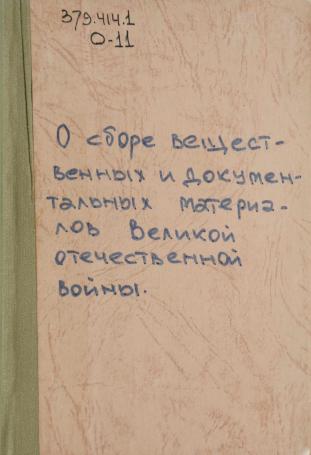 379.414.1
О-11
О сборе вещест-
венных и докумен-
тальных материа-
лов Великой
отечественной
войны.